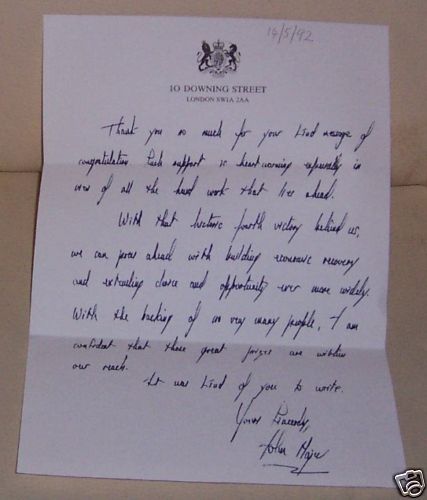 14/5/92
10 DOWNING STREET
LONDON SW1A 2AA
Thank you so much for your kind message of
congratulation. Such support is heartwarming especially in
view of all the hard work that lies ahead.
With that historic fourth victory behind us,
we can press ahead with building economic recovery
and extending choice and opportunity ever more widely.
With the backing of so very many people, I am
confident that those great prizes are within
our reach.
It was kind of you to write.
Yours Sincerely,
John Major